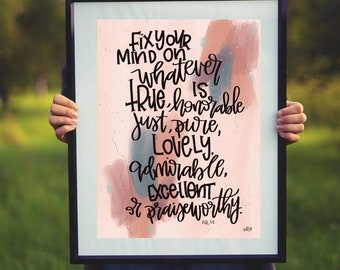 Fix your
mind on
whatever
is
true, honorable
just, pure,
Lovely,
admirable,
Excellent
or praiseworthy.